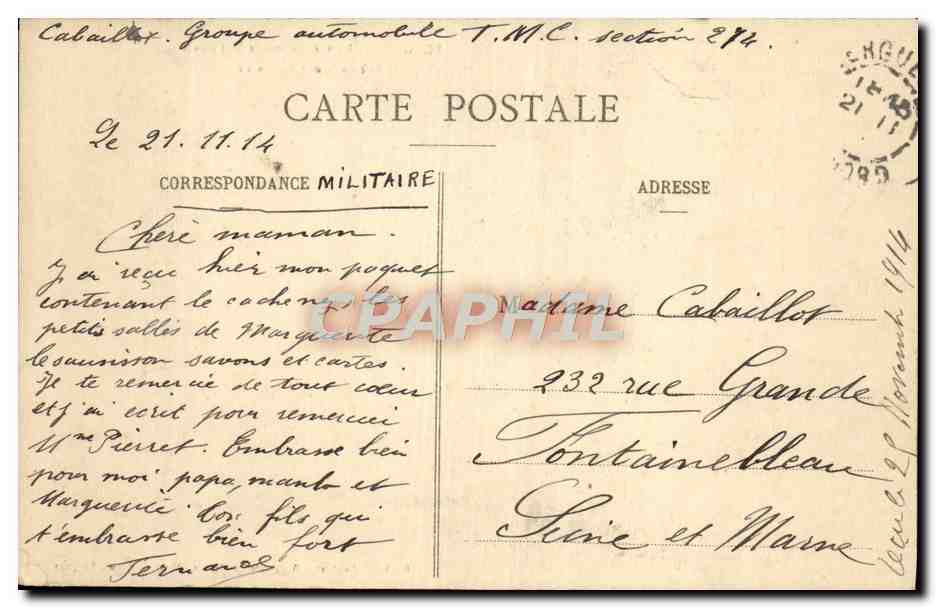 Cabaillot. Groupe automobile T.M.C. section 274.
CARTE POSTALE
Le 21.11.14
CORRESPONDANCE MILITAIRE
Chère maman.
J'ai reçu hier mon paquet
contenant le cache nez les
petits sablés de Marguerite
le saucisson savons et cartes.
Je te remercie de tout cœur
et j'ai écrit pour remercier
Mme Pierret. Embrasse bien
pour moi papa, et
Marguerite. Ton fils qui
t'embrasse bien fort
Fernand
ADRESSE
Madame Cabaillot
232 rue Grande
Fontainebleau
Seine et Marne
Reçu le 25 Novemb 1914
21 11
NORD
CPAPHIL